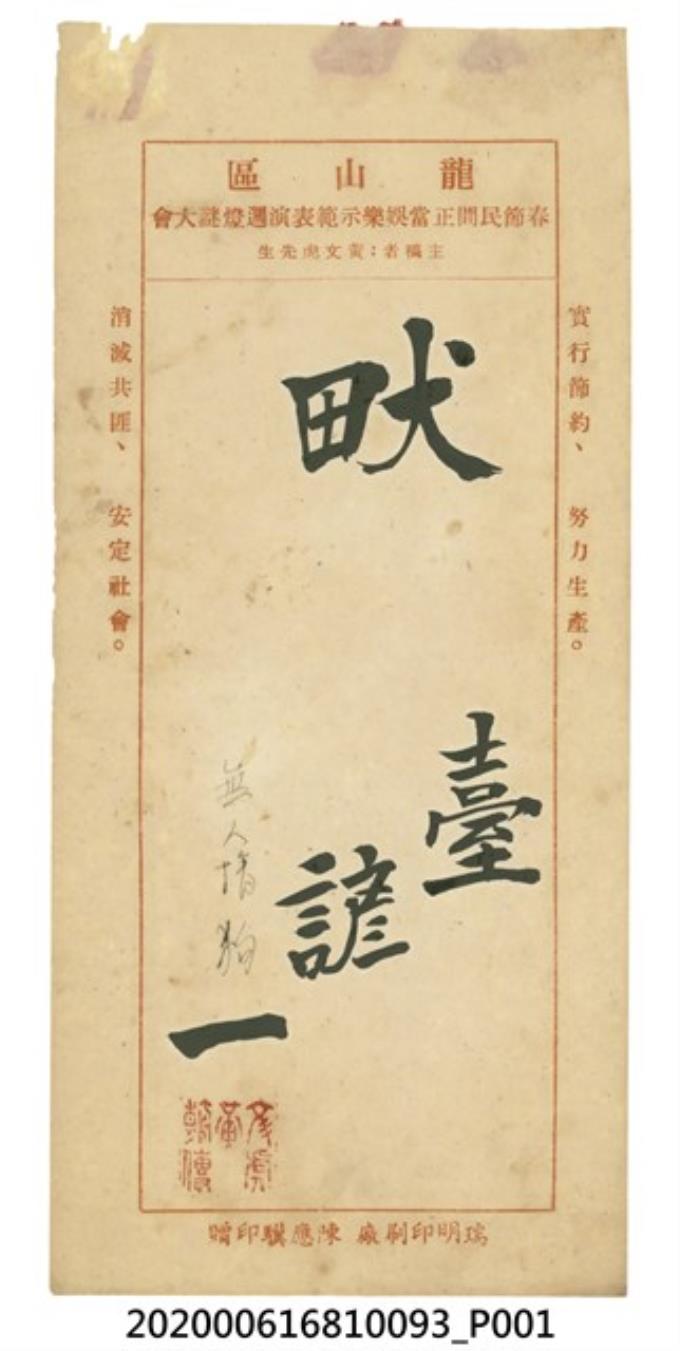 龍山區
春節民間正當娛樂示範表演週燈謎大會
主稿者：黃文虎先生
實行節約、努力生產。
畎
臺
諺
一
無人惜狗
消滅共匪、安定社會。
瑞明印刷廠 陳應驥印贈
202000616810093_P001